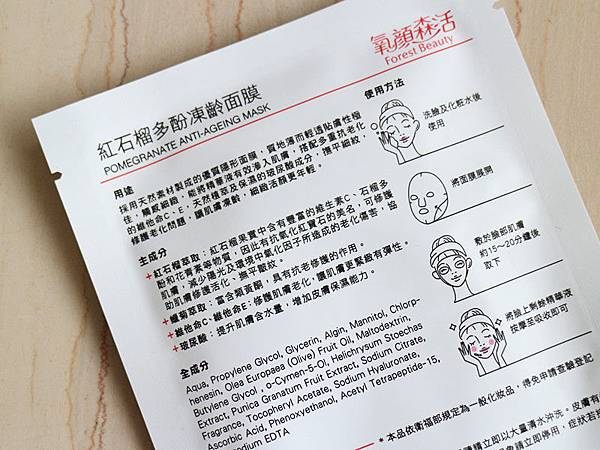 氧顏森活
Forest Beauty
紅石榴多酚凍齡面膜
POMEGRANATE ANTI-AGEING MASK
用途
採用天然素材製成的優質隱形面膜，質地薄而輕透貼膚性極
佳，觸感細緻，能將精華液有效滲入肌膚，搭配多重抗老化
的維他命C、E，天然植萃及保濕的玻尿酸成分，撫平細紋，
修護老化問題，讓肌膚凍齡，細緻活顏更年輕。
主成分
+紅石榴萃取：紅石榴果實中含有豐富的維生素C、石榴多
酚和花青素等物質，因此有抗氧化紅寶石的美名，可修護
肌膚，減少陽光及環境中氧化因子所造成的老化傷害，協
助肌膚修護活化、撫平皺紋。
萃取：富含類黃酮，具有抗老修護的作用。
+維他命C、維他命E：修護肌膚老化，讓肌膚更緊緻有彈性。
+玻尿酸：提升肌膚含水量，增加皮膚保濕能力。
全成分
Aqua, Propylene Glycol, Glycerin, Algin, Mannitol, Chlorp-
henesin, Olea Europaea (Olive) Fruit Oil, Maltodextrin,
Butylene Glycol , o-Cymen-5-Ol, Helichrysum Stoechas
Extract, Punica Granatum Fruit Extract, Sodium Citrate,
Fragrance, Tocopheryl Acetate, Sodium Hyaluronate,
Ascorbic Acid, Phenoxyethanol, Acetyl Tetrapeptide-15,
EDTA
使用方法
洗臉及化粧水後
使用
將面膜展開
敷於臉部肌膚
約15～20分鐘後
取下
將臉上剩餘精華液
按摩至吸收即可
* 本品依衛福部規定為一般化妝品，得免申請查驗登記
請立即以大量清水沖洗。皮膚有
請立即停用，症狀若持